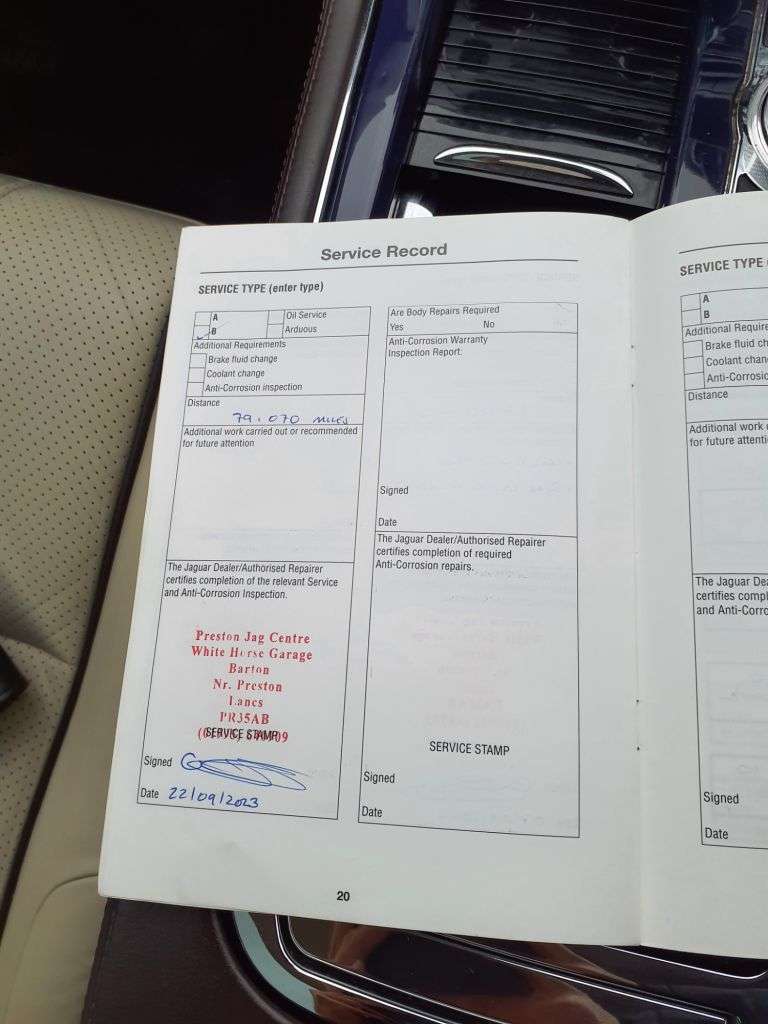 Service Record
SERVICE TYPE (enter type)
A
Oil Service
B
Arduous
Additional Requirements
Brake fluid change
Coolant change
Anti-Corrosion inspection
Distance
79.070 MILES
Additional work carried out or recommended
for future attention
The Jaguar Dealer/Authorised Repairer
certifies completion of the relevant Service
and Anti-Corrosion Inspection.
Preston Jag Centre
White Horse Garage
Barton
Nr. Preston
Lancs
PR35AB
SERVICE STAMP
Signed
Date 22/09/2023
Are Body Repairs Required
Yes No
Anti-Corrosion Warranty
Inspection Report.
Signed
Date
The Jaguar Dealer/Authorised Repairer
certifies completion of required
Anti-Corrosion repairs.
SERVICE STAMP
Signed
Date
20
SERVICE TYPE
A
B
Additional
Brake fluid
Coolant
Distance
Additional work
for future
The Jaguar
certifies
and
Signed
Date